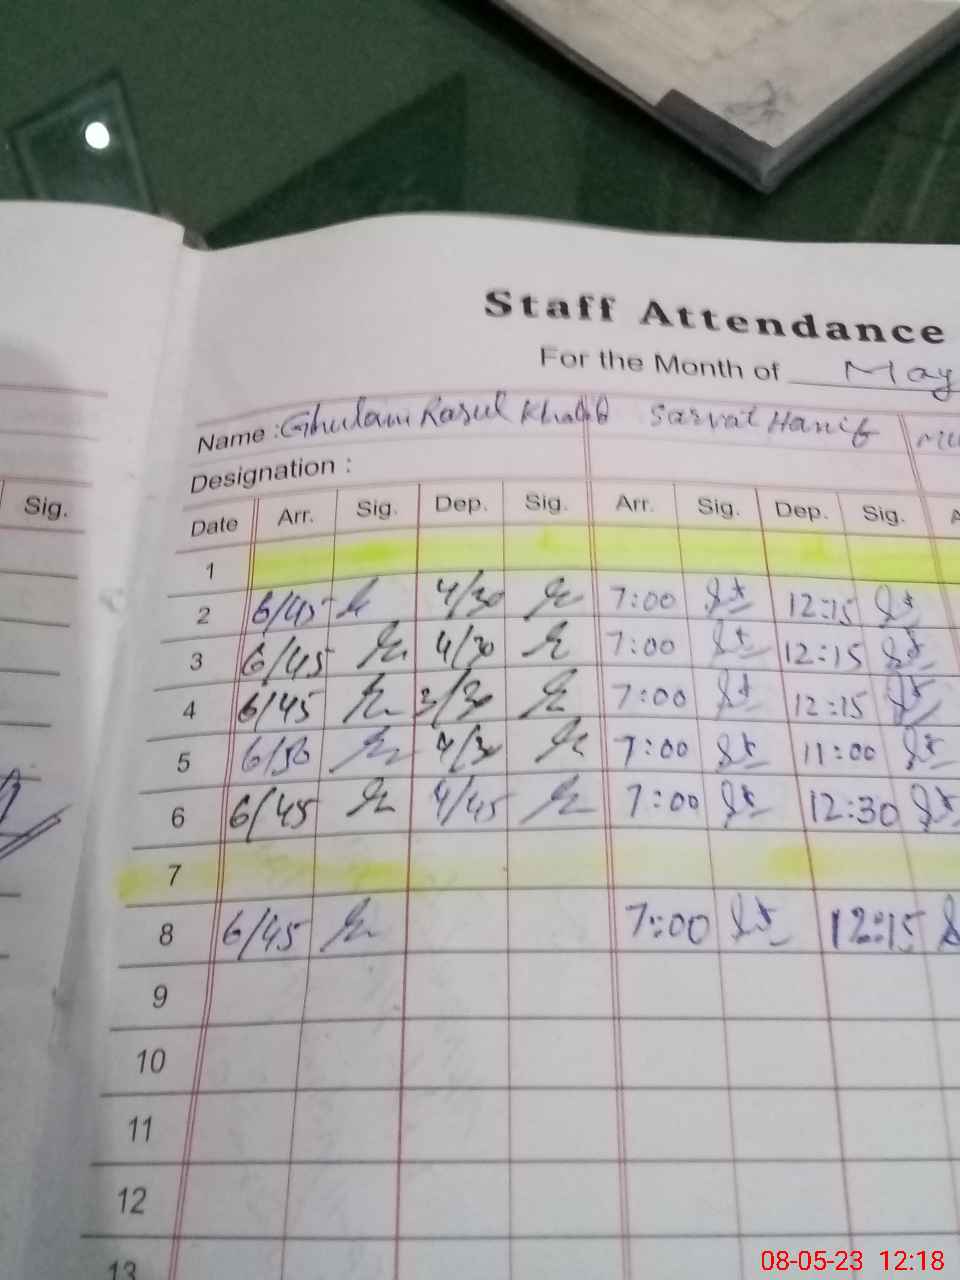 Staff Attendance
For the Month of May
Name : Ghulam Rasul Sarvat Hanif
Designation :
Sig. Date Arr. Sig. Dep. Sig. Arr. Sig. Dep. Sig.
1
2 6/45 4/30 7:00 12:15
3 6/45 4/30 7:00 12:15
4 6/45 3/30 7:00 12:15
5 6/50 4/30 7:00 11:00
6 6/45 4/45 7:00 12:30
7
8 6/45 7:00 12:15
9
10
11
12
13
08-05-23 12:18